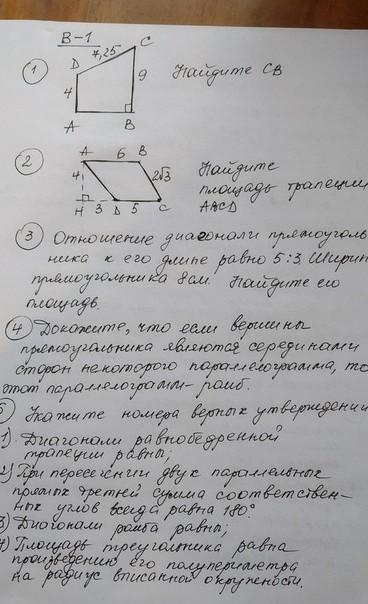 В-1
1
D
7,25
C
4
9
A
B
Найдите CB
2
A
6
B
4
2√3
H
3
D
5
C
Найдите
площадь трапеции
ABCD
3 Отношение диагонали прямоуголь
ника к его длине равно 5:3 Ширин
прямоугольника 8 см. Найдите его
площадь.
4 Докажите, что если вершины
прямоугольника являются серединами
сторон некоторого параллелограмма, то
этот параллелограмм- ромб.
5 Укажите номера верных утверждений
1) Диагонали равнобедренной
трапеции равны;
2) При пересечении двух параллельных
прямых третьей сумма соответствен-
ных углов всегда равна 180°.
3) Диагонали ромба равны;
4) Площадь треугольника равна
произведению его полупериметра
на радиус вписанной окружности.